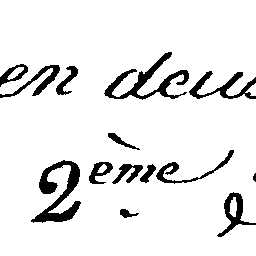 en deus
2ème